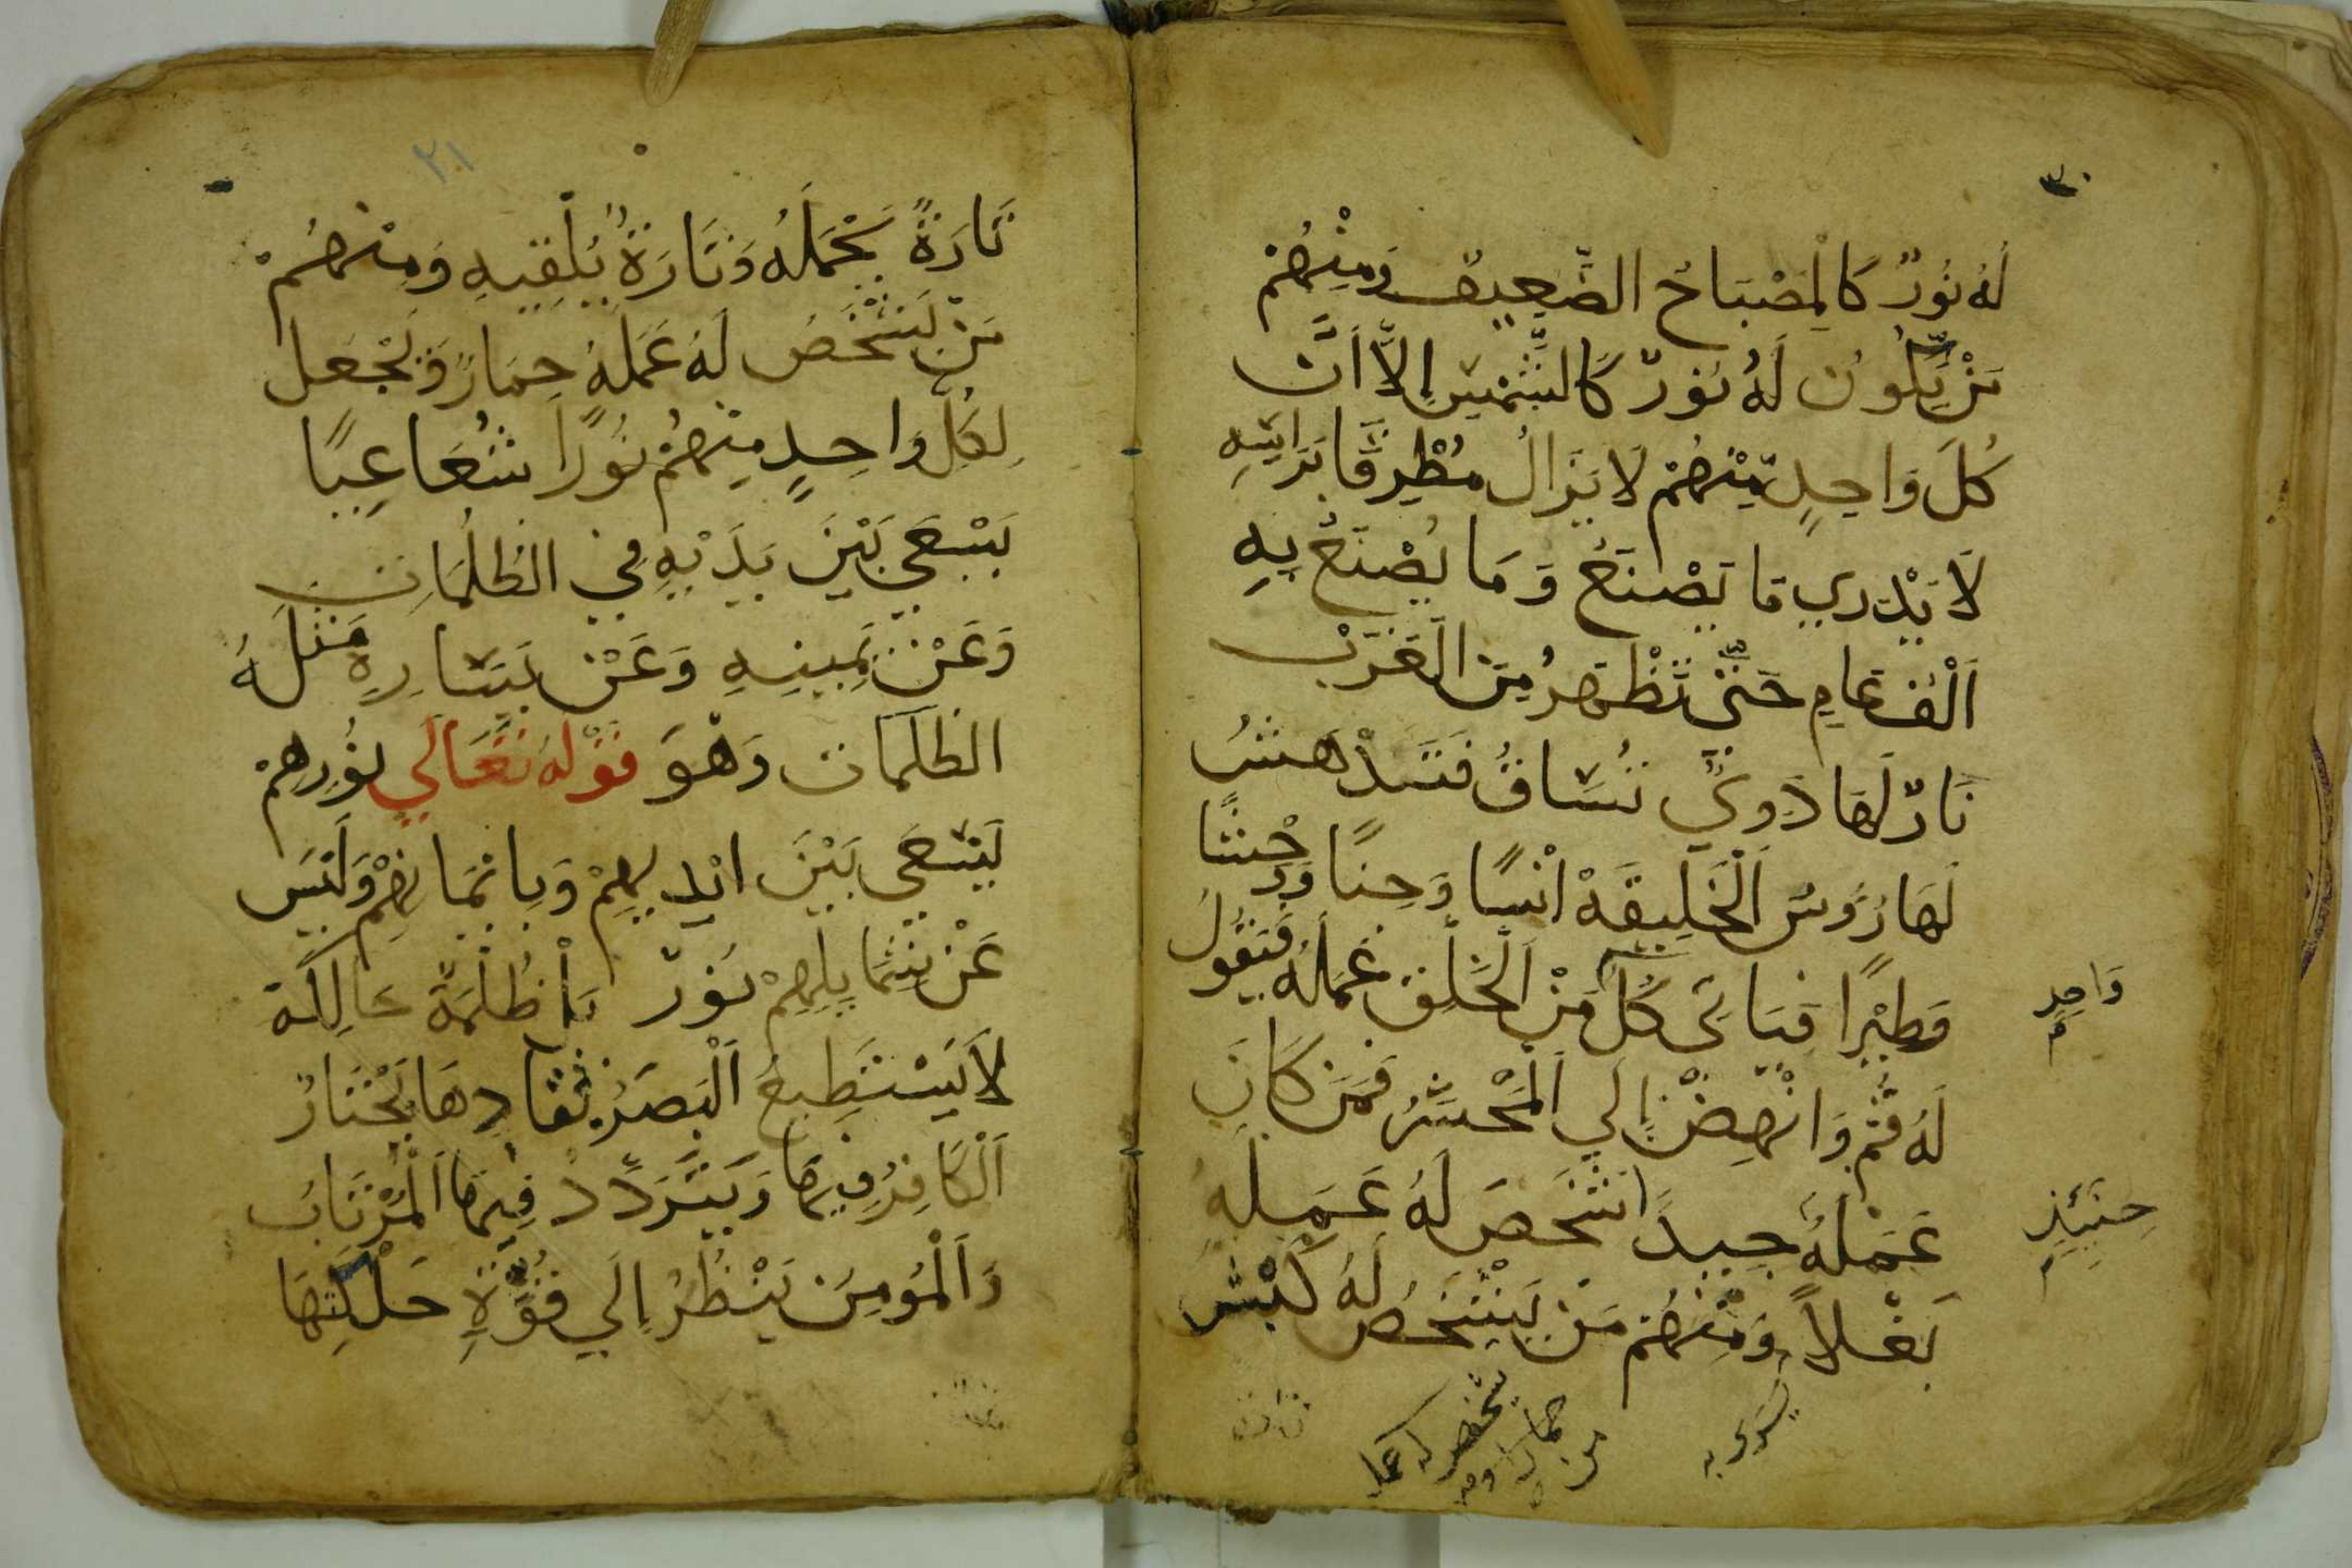 ٣٠
لَهُ نُورٌ كَالْمِصْبَاحِ الضَّعِيفِ وَمِنْهُمْ
مَنْ يَكُونُ لَهُ نُورٌ كَالشَّمْسِ إِلَّا أَنَّ
كُلَّ وَاحِدٍ مِنْهُمْ لَا يَزَالُ مُطْرِقًا بَرَاسِهِ
لَا يَدْرِي مَا يَصْنَعُ وَمَا يُصْنَعُ بِهِ
اَلْفَ عَامٍ حَتَّى تَظْهَرُ مِنَ الْغَرْبِ
نَارٌ لَهَا دَوِيٌّ تُسَاقُ فَتَدْهَشُ
لَهَا رُؤسُ الْخَلِيقَةْ اِنْسًا وَجِنًا وَوَحْشًا
وَطَيْرًا فَيَاتِي كُلُّ مِنْ الْخَلْقِ عَمَلُهُ فَيَقُولُ
وَاحِدٍ
لَهُ قُمْ وَانْهِضْ إِلَي الْمَحْشَرِ فَمَنْ كَانَ
عَمَلُهُ جَيِّدًا شَخَصَ لَهُ عَمَلِهُ
حِينَئِذٍ
بَغْلًا وَمِنْهُمْ مَنْ يَشْخَصُ لَهُ كَبْش
٢١
تَارَةً يَحْمِلُهُ وَتَارَةً يُلْقِيهِ وَمِنْهُمْ
مَنْ يَشْخَصُ لَهُ عَمَلَهُ حِمَارً وَيَجْعَل
لِكُلِّ وَاحِدٍ مِنْهُمْ نُورًا شُعَاعِيًا
يَسْعَي بَيْنَ يَدَيْهِ فِي الظُلُمَاتِ
وَعَنْ يَمِينِهِ وَعَنْ يَسَارِهِ مَثَلَهُ
الظُلَمَات وَهُوَ قَوْلُهُ تَعَالَي نُورِهِمْ
يَسْعَى بَيْنَ ايْدِيهِمْ وَبِايْمَانِهِمْ وَلَيْسَ
عَنْ شِمَايِلِهِمْ نُورٌ بَلْ ظُلْمَةٌ حَالِكَة
لَا يَسْتَطِيعُ الْبَصَرُ نَفَادِهَا يَحْتَارُ
اَلْكَافِرُ فِيهَا وَيَتَرَدَّدْ فِيهَا الْمُرْتَابُ
وَالْمُومِنَ يَنْظُرُ إِلَي قُوَّةِ حَلْكَتِهَا